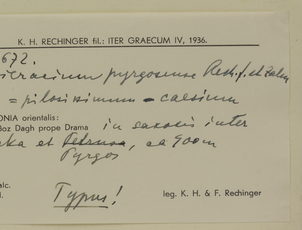 K. H. RECHINGER fil.: ITER GRAECUM IV, 1936.
672.
pyrgosense Rech. f. et Zahn
= pilosissimum - caesium
ONIA orientalis:
Boz Dagh prope Drama in saxosis inter
et Petrusa, ca 900 m
Pyrgos
alc.
Typus!
i. leg. K. H. & F. Rechinger